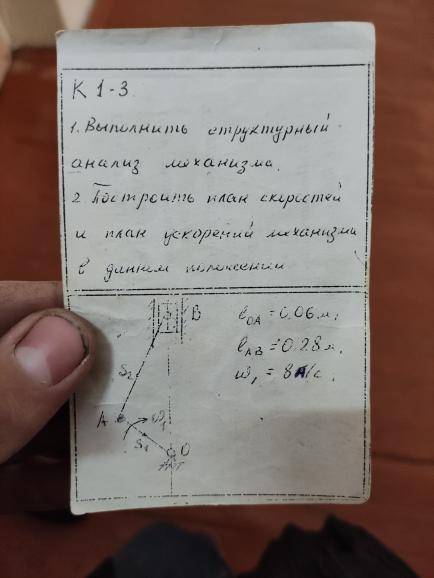 К 1-3.
1. Выполнить структурный
анализ механизма.
2. Построить план скоростей
и план ускорений механизма
в данном положении
B
S₂
A
ω₁
S₁
O
l_OA = 0.06 м,
l_AB = 0.28 м,
ω₁ = 8 1/с.